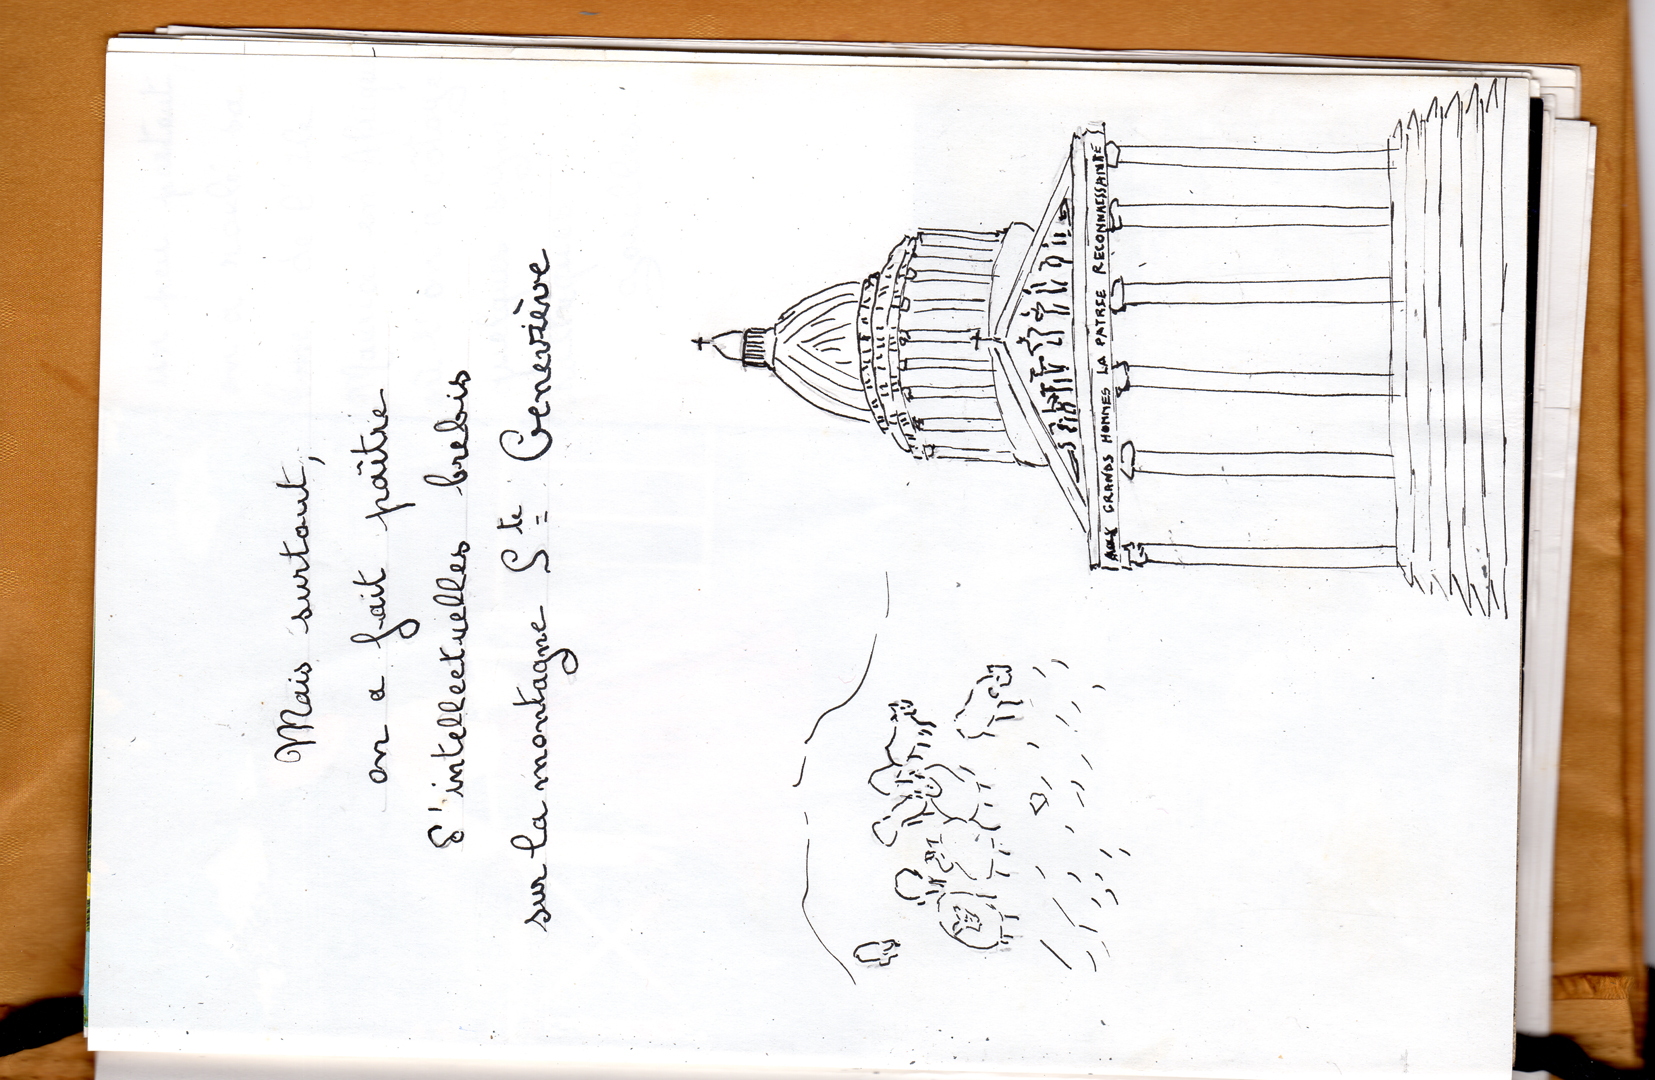 Mais surtout,
on a fait paître
d'intellectuelles brebis
sur la montagne Ste Geneviève
AUX GRANDS HOMMES LA PATRIE RECONNAISSANTE